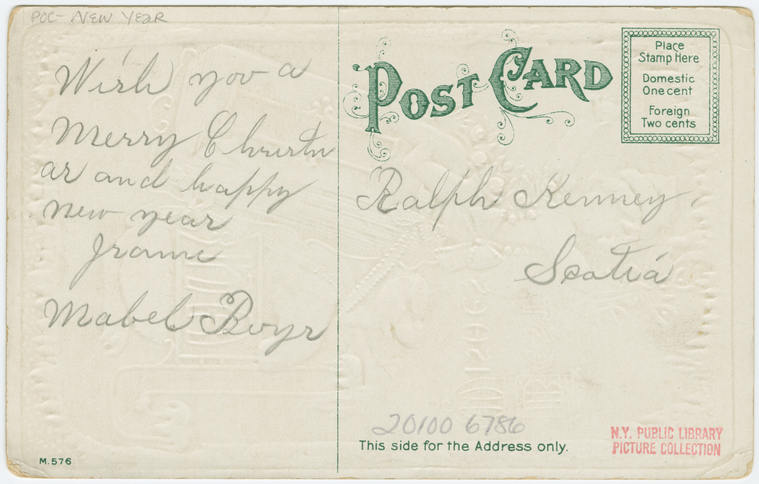 POC- New Year
Wish you a
Merry Christm
as and happy
new year
from
Mabel Boyr
POST CARD
Place
Stamp Here
Domestic
One cent
Foreign
Two cents
Ralph Kenney
Scotia
20100 6786
This side for the Address only.
N.Y. PUBLIC LIBRARY
PICTURE COLLECTION
M.576